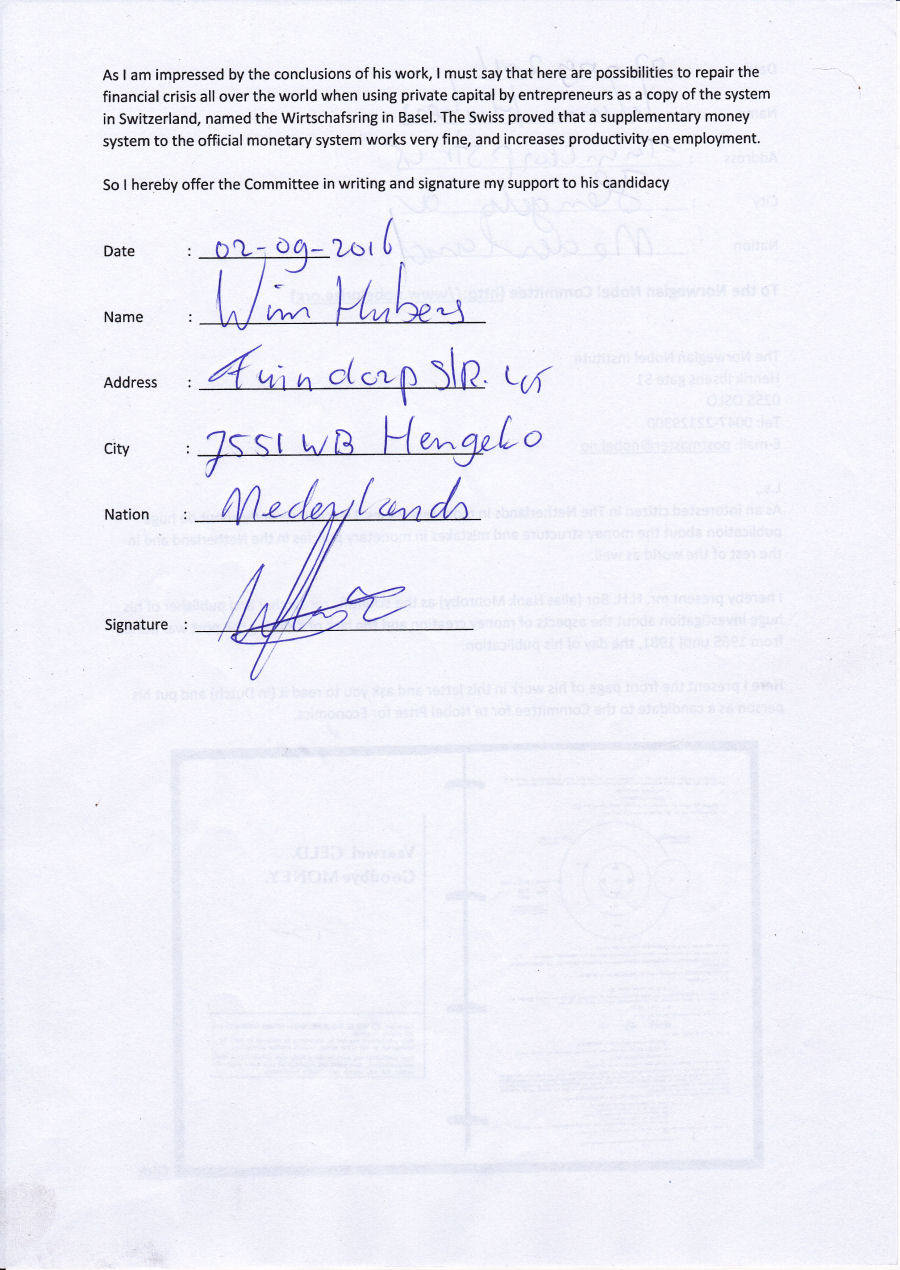 As I am impressed by the conclusions of his work, I must say that here are possibilities to repair the
financial crisis all over the world when using private capital by entrepreneurs as a copy of the system
in Switzerland, named the Wirtschafsring in Basel. The Swiss proved that a supplementary money
system to the official monetary system works very fine, and increases productivity en employment.
So I hereby offer the Committee in writing and signature my support to his candidacy
Date : 02-09-2016
Name : Wim Hubers
Address : Tuindorpstr.
City : 7551 WB Hengelo
Nation : Nederlands
Signature :